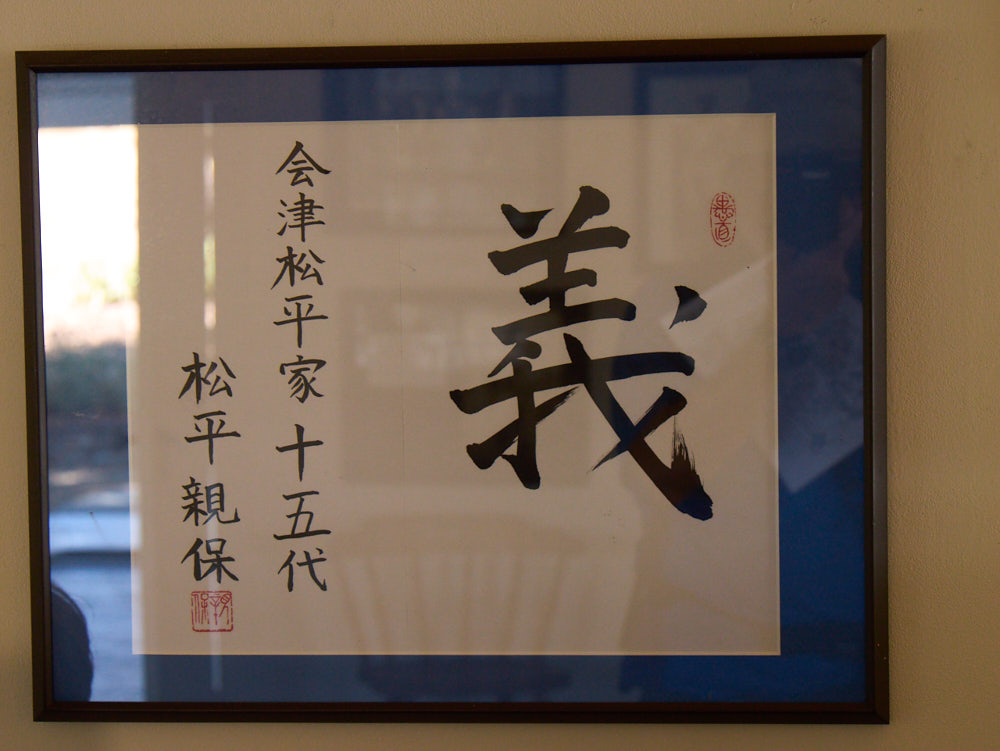 義
会津松平家十五代
松平親保
親保